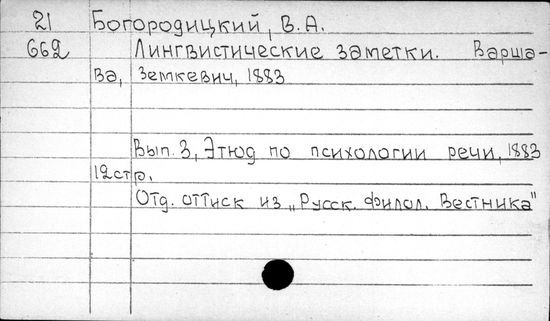 21 Богородицкий, В.А.
662 Лингвистические заметки. Варша-
ва, Земкевич, 1883
Вып. 3, Этюд по психологии речи, 1883
12 стр.
Отд. оттиск из „Русск. Филол. Вестника"